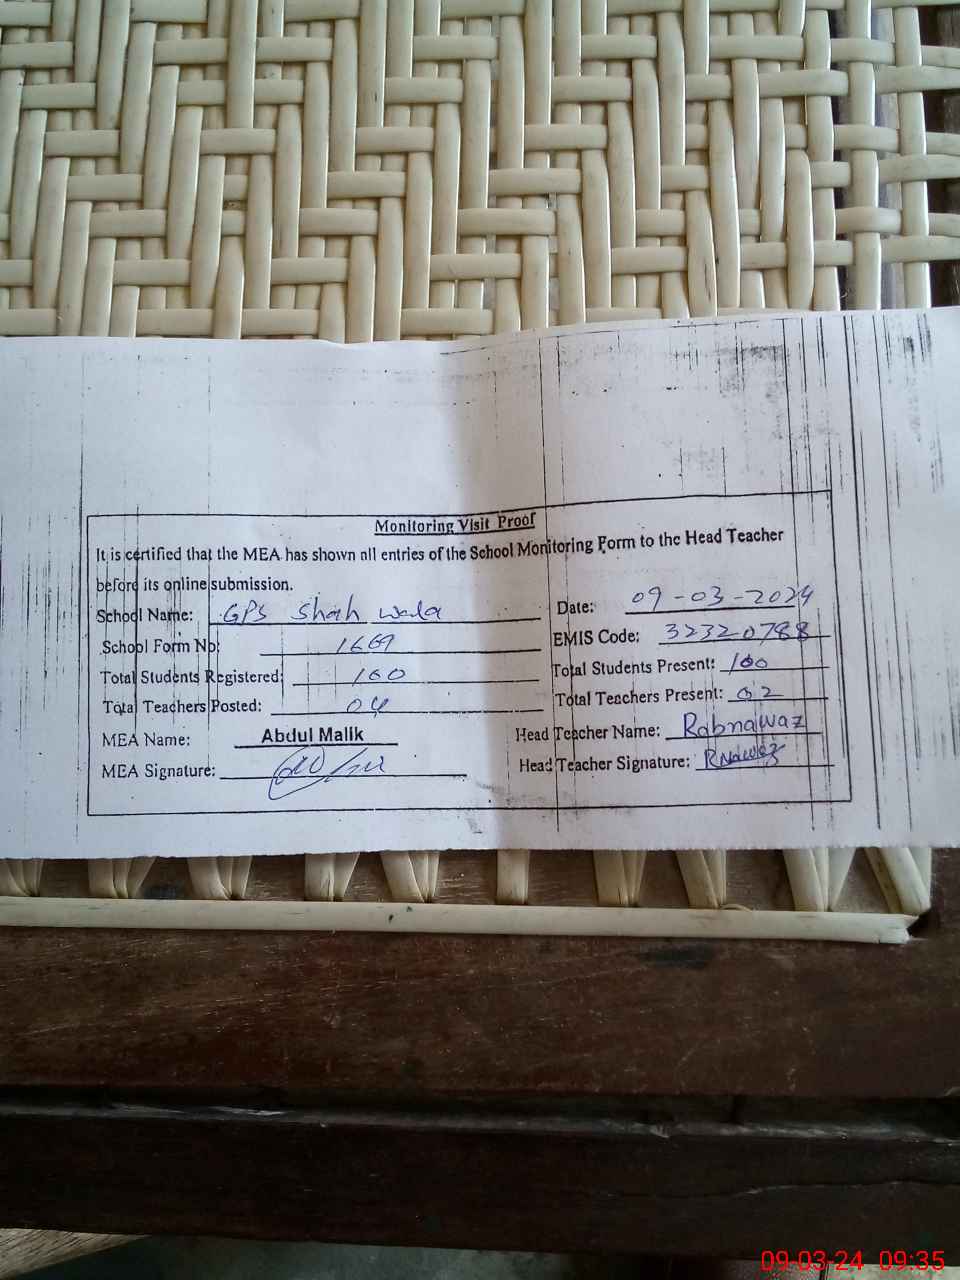 Monitoring Visit Proof
It is certified that the MEA has shown all entries of the School Monitoring Form to the Head Teacher
before its online submission.
School Name: GPS Shah wala Date: 09-03-2024
School Form No: 1669 EMIS Code: 32320788
Total Students Registered: 160 Total Students Present: 100
Total Teachers Posted: 04 Total Teachers Present: 02
MEA Name: Abdul Malik Head Teacher Name: Rabnawaz
MEA Signature: Head Teacher Signature: RNawaz
09-03-24 09:35